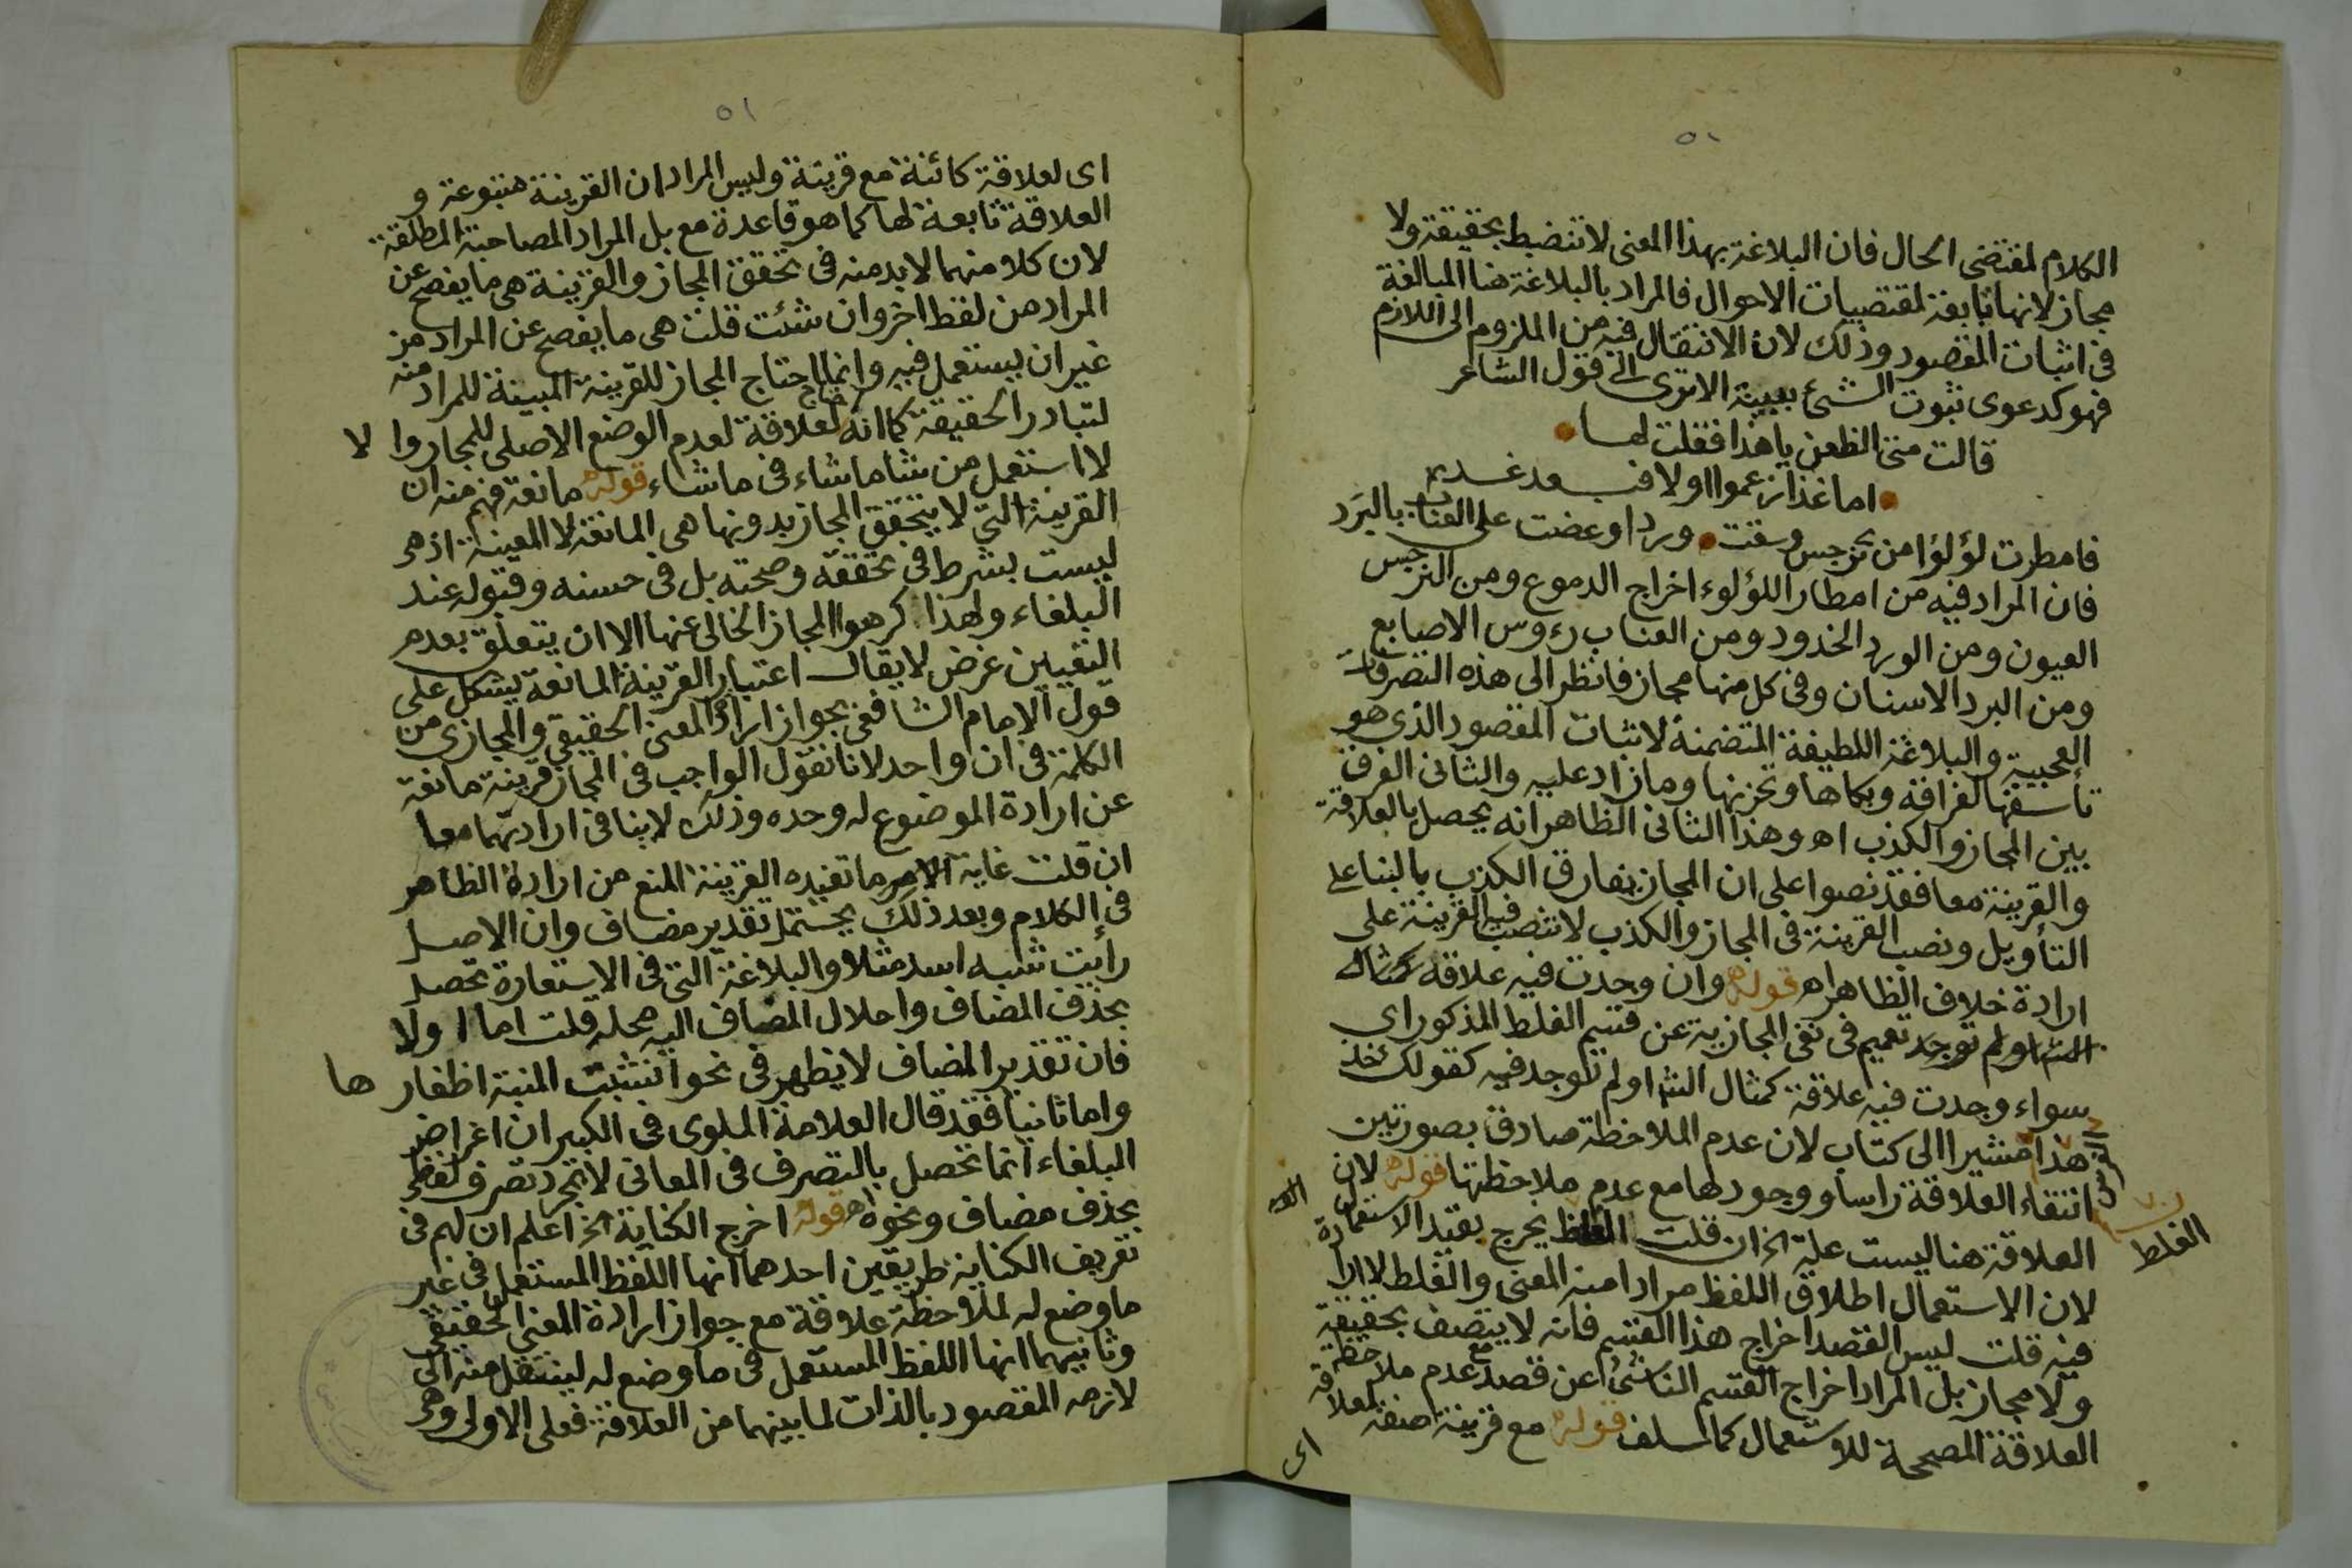 ٥٠
الكلام لمقتضى الحال فان البلاغة بهذا المعنى لا تنضبط بحقيقة ولا
مجاز لانها تابعة لمقتضيات الاحوال فالمراد بالبلاغة هنا المبالغة
فى اثبات المقصود وذلك لان الانتقال فيه من الملزوم الى اللازم
فهو كدعوى ثبوت الشئ ببينة الا ترى الى قول الشاعر
قالت متى الظعن يا هذا فقلت لها
اما غدا زعموا او لا فبعد غديم
فامطرت لؤلؤا من نرجس وسقت وردا وعضت على العناب بالبرد
فان المراد فيه من امطار اللؤلوء اخراج الدموع ومن النرجس
العيون ومن الورد الخدود ومن العناب رءوس الاصابع
ومن البرد الاسنان وفى كل منها مجاز فانظر الى هذه التصرفات
العجيبة والبلاغة اللطيفة المتضمنة لاثبات المقصود الذى هو
تأسفها لفراقه وبكاها وتحزنها وما زاد عليه والثانى الفرق
بين المجاز والكذب اه وهذا الثانى الظاهر انه يحصل بالعلاقة
والقرينة معا فقد نصوا على ان المجاز يفارق الكذب بالبنا على
التأويل ونصب القرينة فى المجاز والكذب لا تنصب فيه القرينة على
ارادة خلاف الظاهر اه قوله وان وجدت فيه علاقة كمثال
الشا ولم توجد تعميم فى نفى المجازية عن قسم الغلط المذكور اي
سواء وجدت فيه علاقة كمثال الشا او لم توجد فيه كقولك خذ
هذا مشيرا الى كتاب لان عدم الملاحظة صادق بصورتين
انتفاء العلاقة راسا ووجودها مع عدم ملاحظتها قوله لان
العلاقة هنا ليست علة الخ ان قلت الغلط يخرج بقيد الاستعمال
الغلط
لان الاستعمال اطلاق اللفظ مرادا منه المعنى والغلط لا ارادة
فيه قلت ليس القصد اخراج هذا القسم فانه لا يتصف بحقيقة
ولا مجاز بل المراد اخراج القسم الناشئ عن قصد مع عدم ملاحظة
العلاقة المصححة للاستعمال كما سلف قوله مع قرينة صفة لعلاقة
اى
٥١
اى لعلاقة كائنة مع قرينة وليس المراد ان القرينة متبوعة و
العلاقة تابعة لها كما هو قاعدة مع بل المراد المصاحبة المطلقة
لان كلا منهما لا بد منه فى تحقق المجاز والقرينة هى ما يفصح عن
المراد من لفظ اخر وان شئت قلت هى ما يفصح عن المراد من
غير ان يستعمل فيه وانما احتاج المجاز للقرينة المبينة للمراد منه
لتبادر الحقيقة كما انه احتاج لعلاقة لعدم الوضع الاصلى للمجاز والا
لا استعمل من شا ما شاء فى ما شاء قوله مانعة فهم منه ان
القرينة التى لا يتحقق المجاز بدونها هى المانعة لا المعينة اذ هى
ليست بشرط فى تحققه وصحته بل فى حسنه وقبوله عند
البلغاء ولهذا كرهوا المجاز الخالى عنها الا ان يتعلق بعدم
التعيين غرض لا يقال اعتبار القرينة المانعة يشكل على
قول الامام الشافعى بجواز ارادة المعنى الحقيقي والمجازى من
الكلمة فى ان واحد لانا نقول الواجب فى المجاز قرينة مانعة
عن ارادة الموضوع له وحده وذلك لا ينافى ارادتهما معا
ان قلت غاية الامر ما تفيده القرينة المنع من ارادة الظاهر
فى الكلام وبعد ذلك يحتمل تقدير مضاف وان الاصل
رأيت شبه اسد مثلا والبلاغة التى فى الاستعارة تحصل
بحذف المضاف واحلال المضاف اليه محله قلت اما اولا
فان تقدير المضاف لا يظهر فى نحو انشبت المنية اظفارها
واما ثانيا فقد قال العلامة الملوى فى الكبير ان اغراض
البلغاء انما تحصل بالتصرف فى المعانى لا بمجرد تصرف لفظى
بحذف مضاف ونحوه اه قوله اخرج الكناية الخ اعلم ان لهم فى
تعريف الكناية طريقين احدهما انها اللفظ المستعمل فى غير
ما وضع له لملاحظة علاقة مع جواز ارادة المعنى الحقيقى
وثانيهما انها اللفظ المستعمل فى ما وضع له لينتقل منه الى
لازمه المقصود بالذات لما بينهما من العلاقة فعلى الاولى وهى